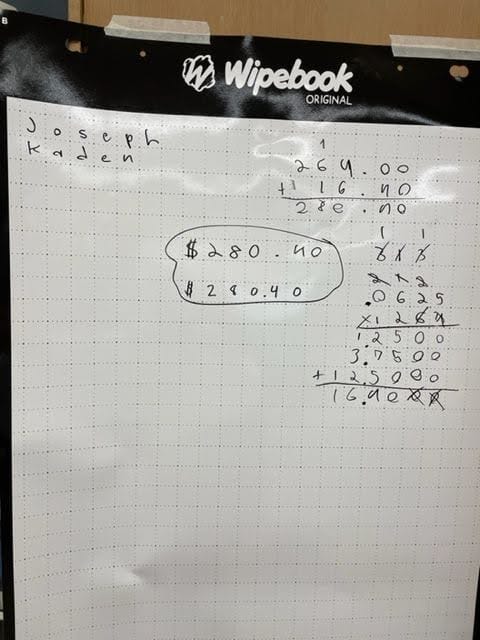 B
Wipebook
ORIGINAL
Joseph
Kaden
1
264.00
+ 16.40
280.40
$280.40
$280.40
1 1
.0625
× 264
.2500
3.7500
+12.5000
16.4000